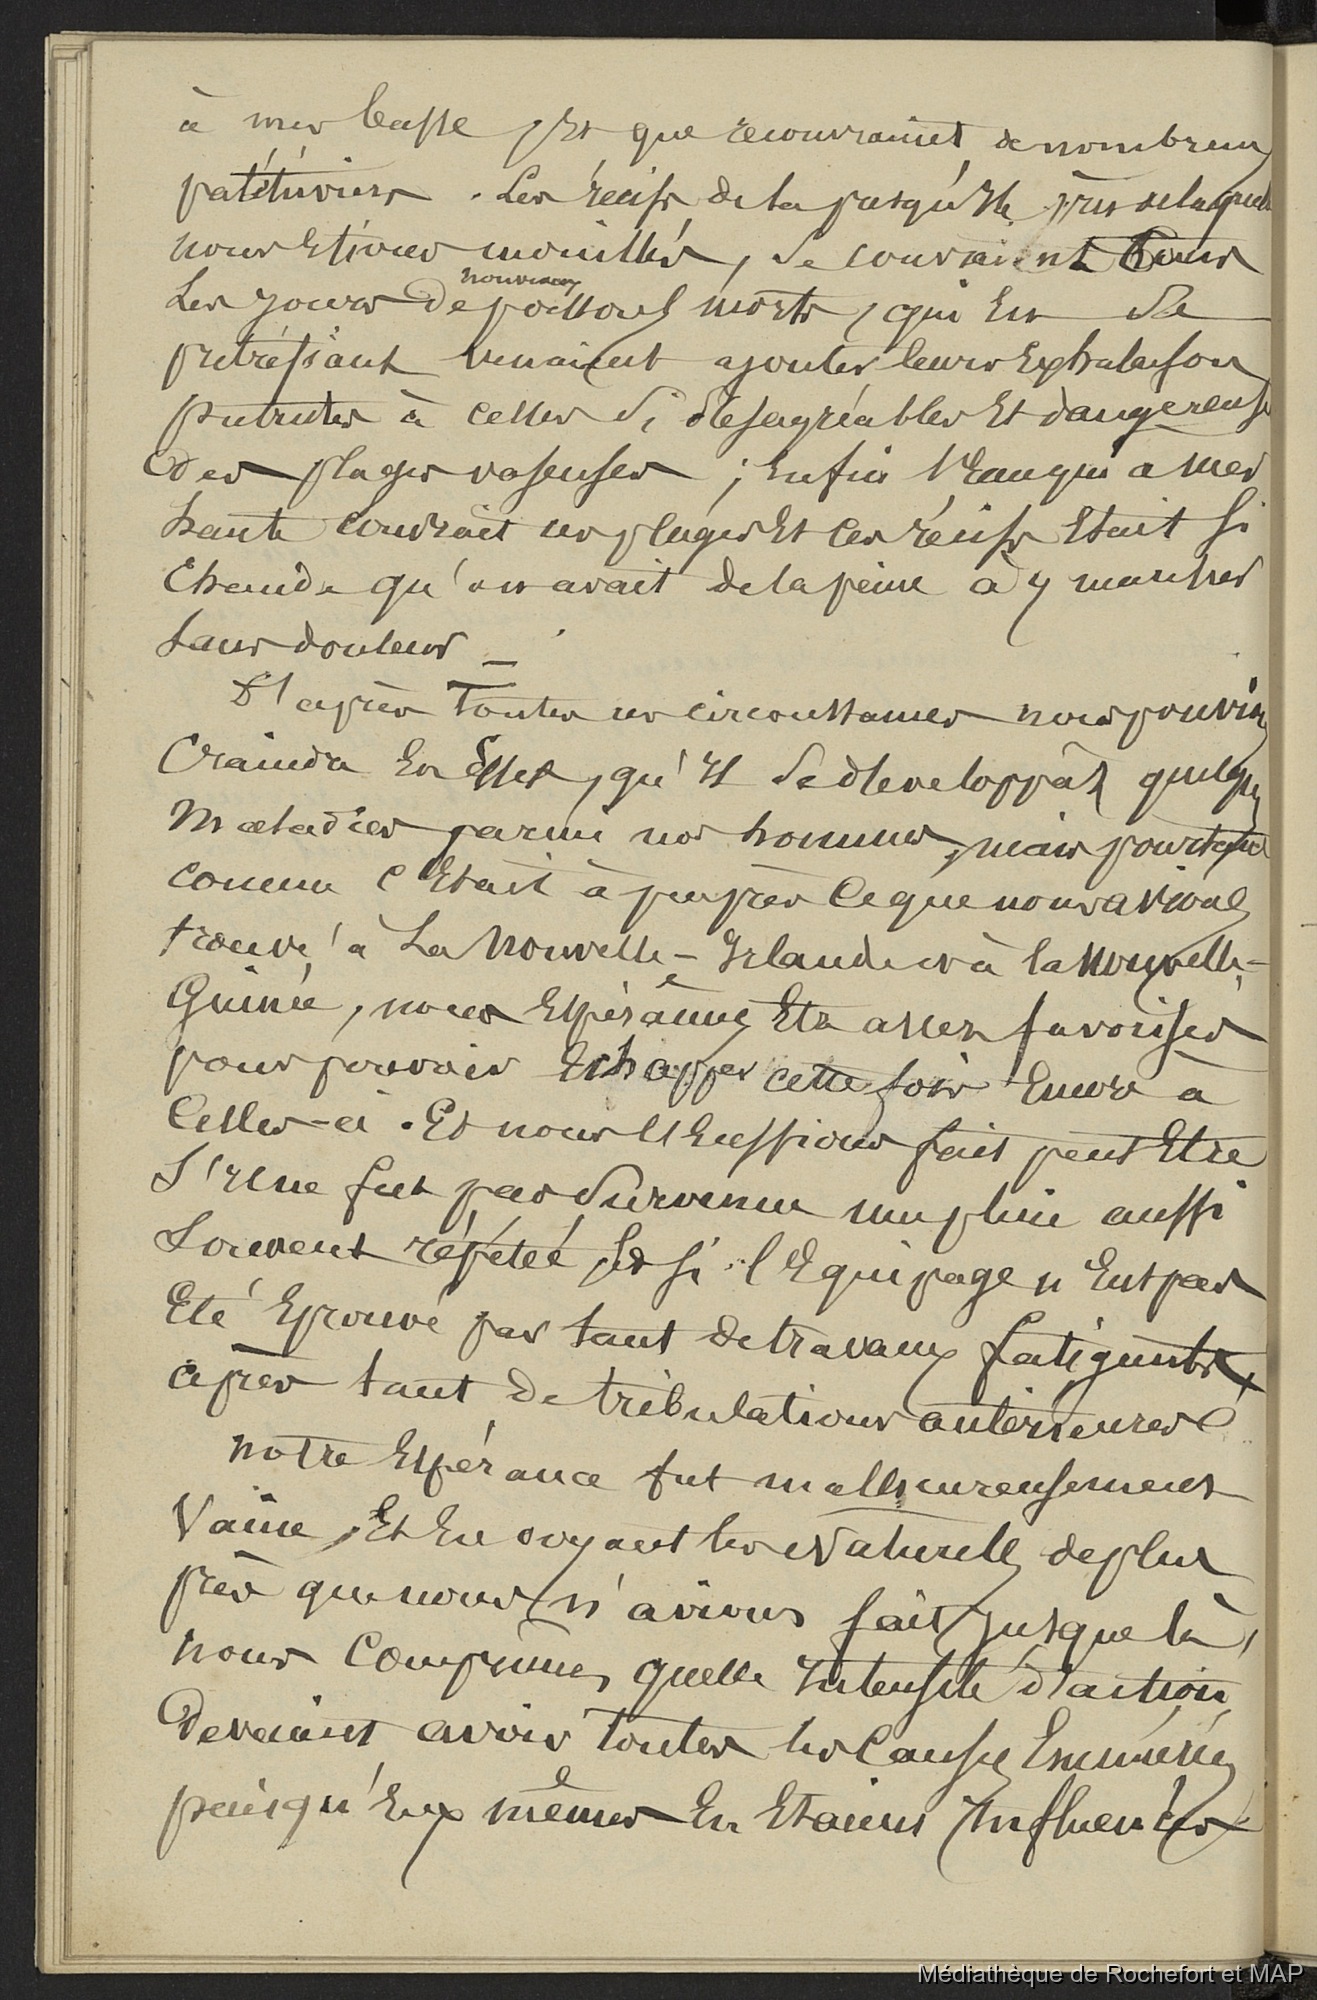 à mer basse, Et que recouvraient de nombreux
palétuviers. Les récifs de la presqu'Ile près de laquelle
nous Etions mouillés, se couvraient tous
Les jours de nouveaux poissons morts, qui En se
putréfiant venaient ajouter leurs Exhalaisons
putrides à celles si désagréables Et dangereuses
des plages vaseuses ; Enfin l'Eau qui a mer
haute couvrait ces plages Et ces récifs Etait si
chaude qu'on avait de la peine à y marcher
sans douleur _
D'après Toutes ces circonstances nous pouvions
Craindre En Effet, qu'Il se développât quelques
Maladies parmi nos hommes, mais pourtant
comme c'Etait à peu près ce que nous avions
trouvé à La Nouvelle-Irlande et à la Nouvelle-
Guinée, nous Espérâmes Etre assez favorisés
pour pouvoir Echapper cette fois Encore à
Celles-ci. Et nous l'Eussions fait peut Etre
S'Il ne fut pas survenu une pluie aussi
Souvent répétée, Et si l'Equipage n'Eut pas
Eté Eprouvé par tant de travaux fatigants,
après tant de tribulations antérieures
Notre Espérance fut malheureusement
Vaine, Et En voyant les Naturels de plus
près que nous n'avions fait jusque là,
nous comprimes quelle Intensité d'action
Devaient avoir toutes les causes Enumérées
puisqu'Eux mêmes En Etaient Influencés
Médiathèque de Rochefort et MAP